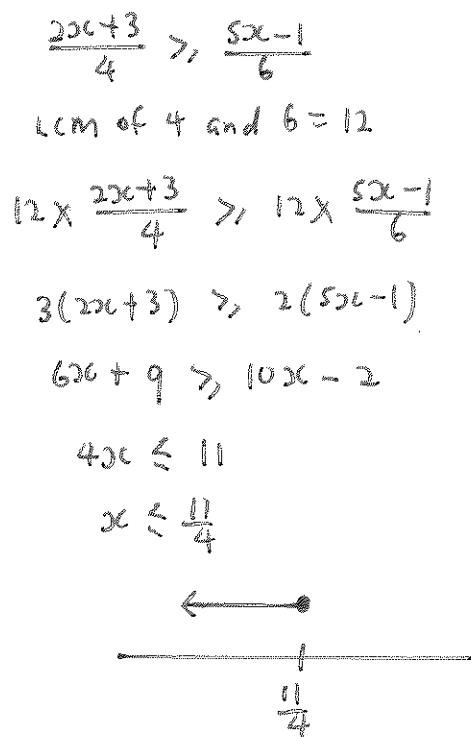 (2x+3)/4 ≥ (5x-1)/6
LCM of 4 and 6 = 12
12 × (2x+3)/4 ≥ 12 × (5x-1)/6
3(2x+3) ≥ 2(5x-1)
6x + 9 ≥ 10x - 2
4x ≤ 11
x ≤ 11/4
11/4